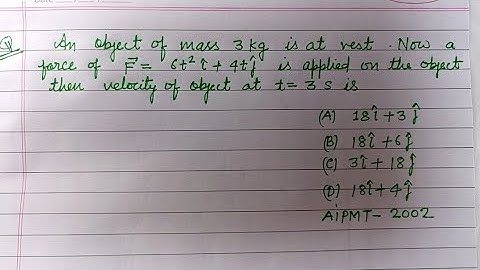 Q An object of mass 3 kg is at rest. Now a
force of F⃗ = 6t² î + 4t ĵ is applied on the object
then velocity of object at t = 3 s is
(A) 18î + 3ĵ
(B) 18î + 6ĵ
(C) 3î + 18ĵ
(D) 18î + 4ĵ
AIPMT - 2002